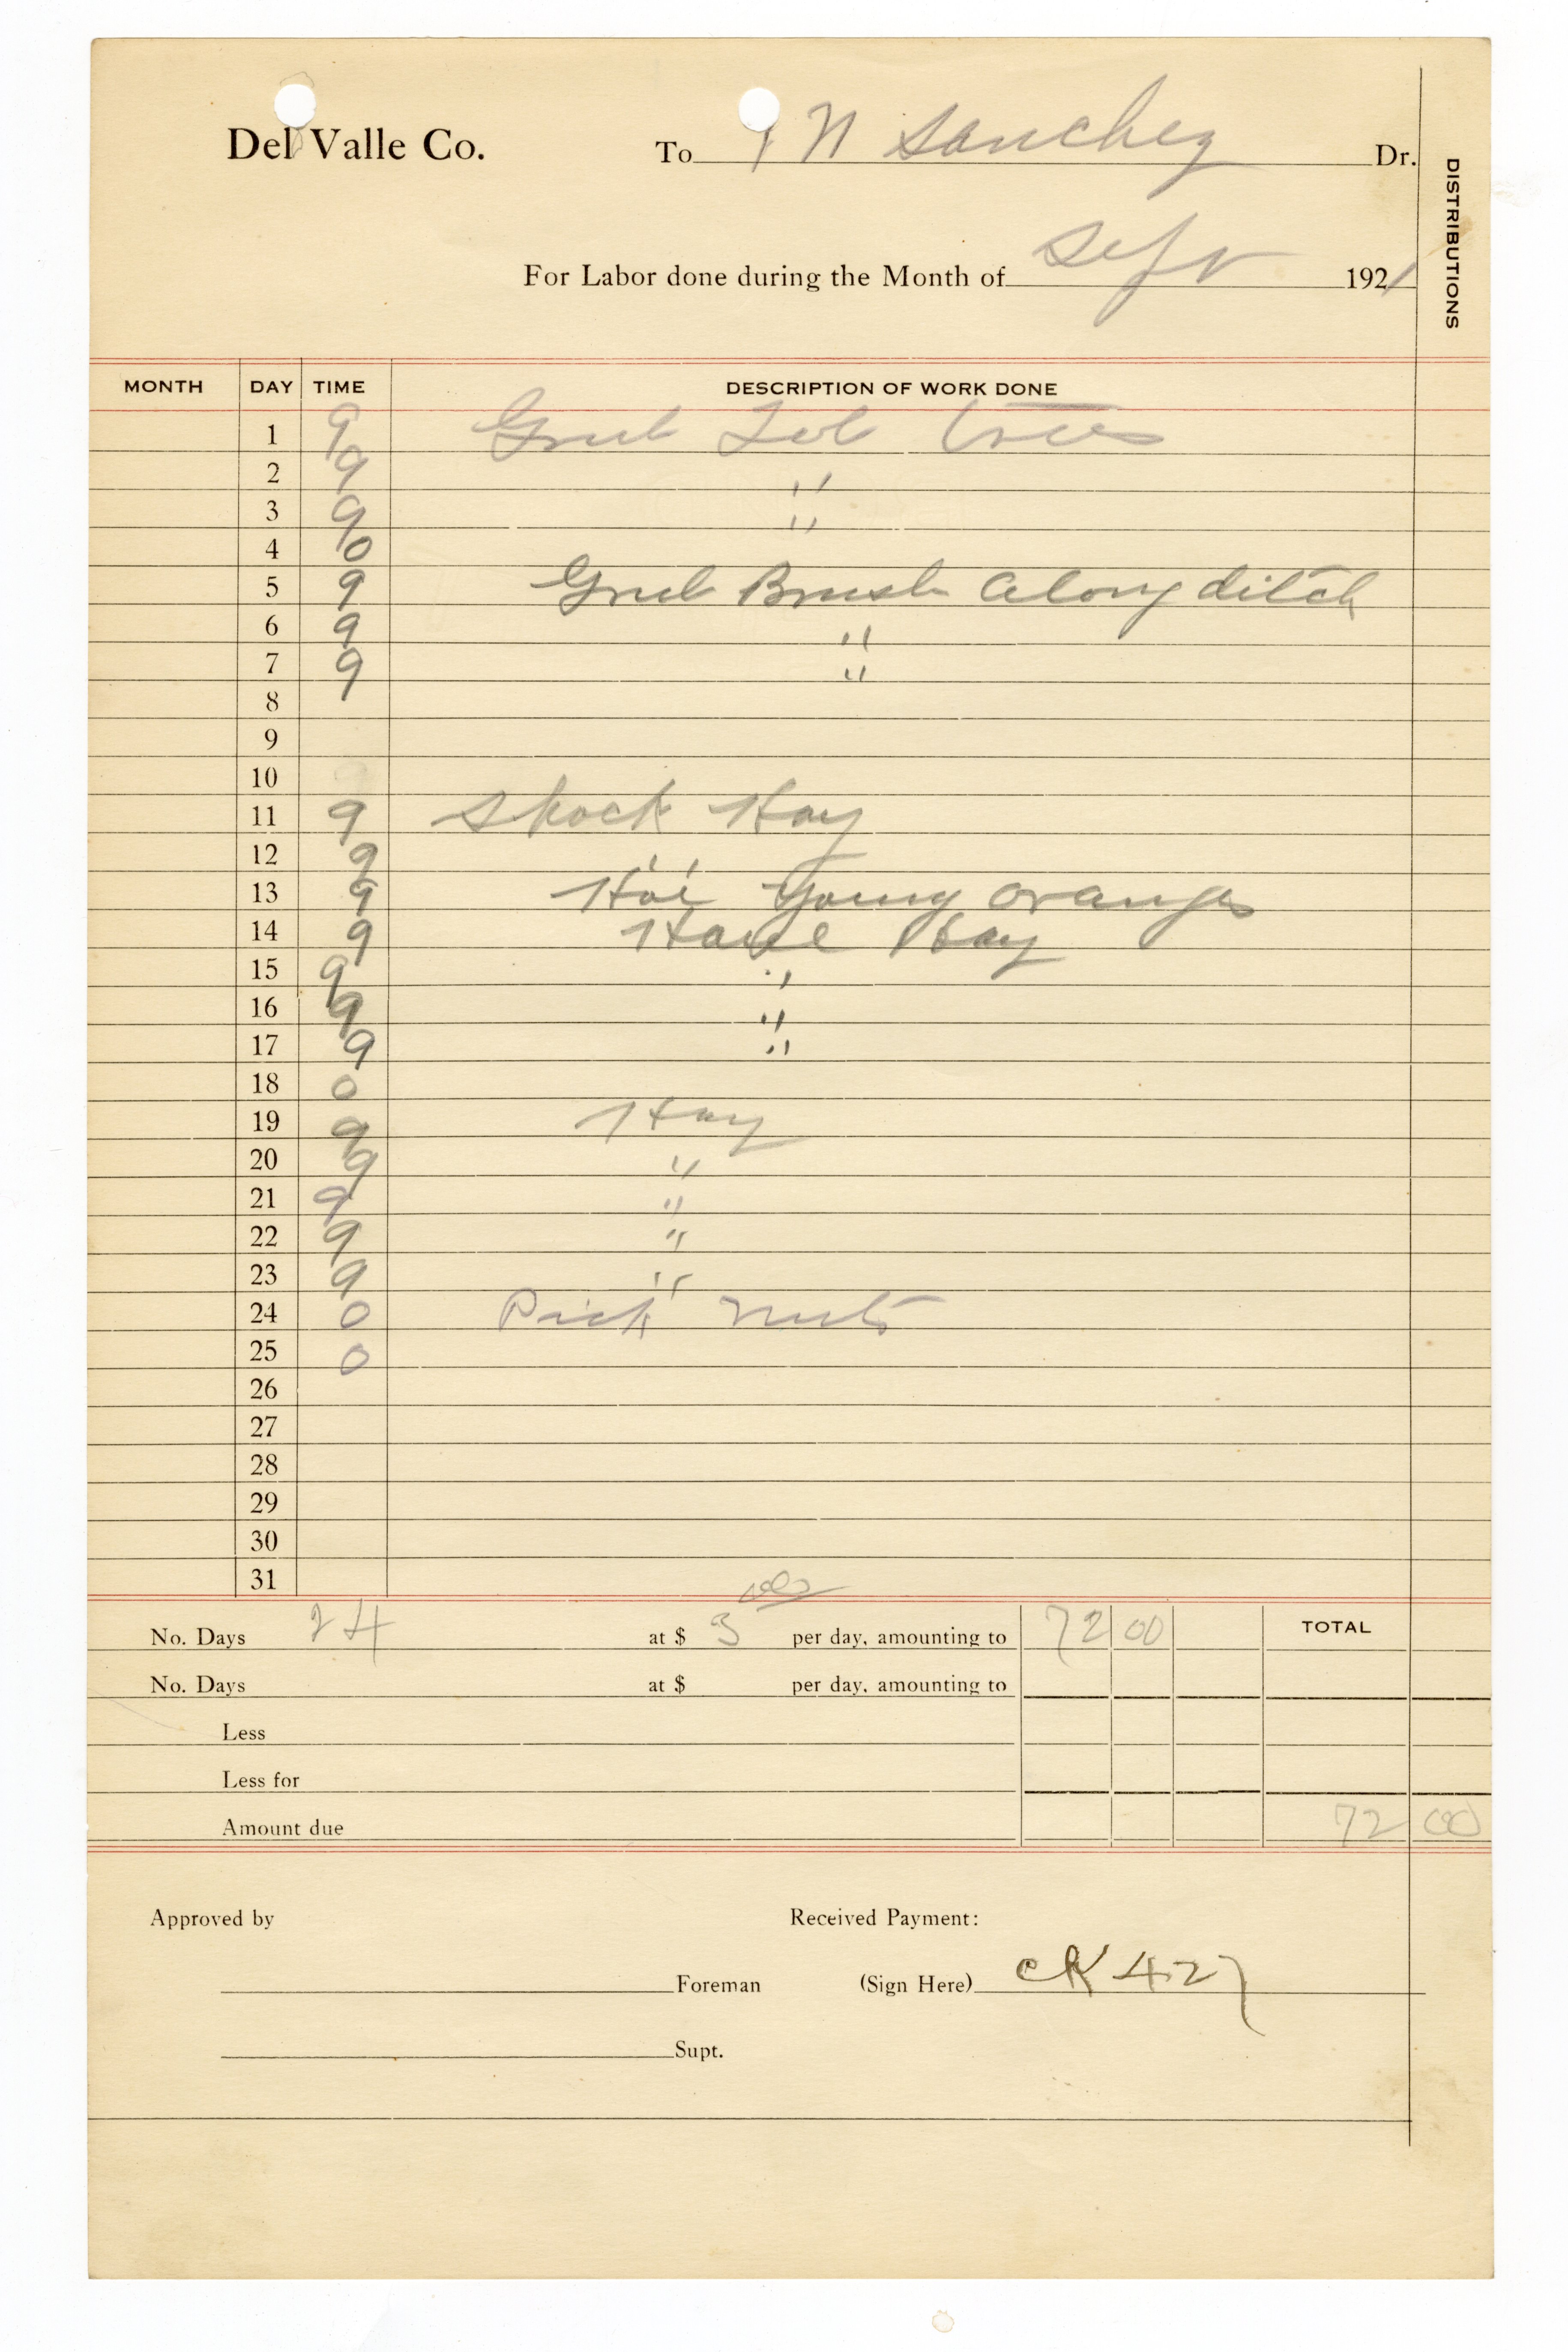 Del Valle Co. To N Sanchez Dr.
DISTRIBUTIONS
For Labor done during the Month of Sept 1921
MONTH DAY TIME DESCRIPTION OF WORK DONE
1 9 Grub Tob trees
2 9 "
3 9 "
4 0
5 9 Grub Brush Along ditch
6 9 "
7 9 "
8
9
10
11 9 Shock Hay
12 9 "
13 9 Hoe Young oranges
14 9 Haul Hay
15 9 "
16 9 "
17 9 "
18 0
19 9 Hay
20 9 "
21 9 "
22 9 "
23 9 "
24 0 Pick nuts
25 0
26
27
28
29
30
31
No. Days 24 at $ 3 00 per day, amounting to 72 00 TOTAL
No. Days at $ per day, amounting to
Less
Less for
Amount due 72 00
Approved by Received Payment:
Foreman (Sign Here) CK 427
Supt.